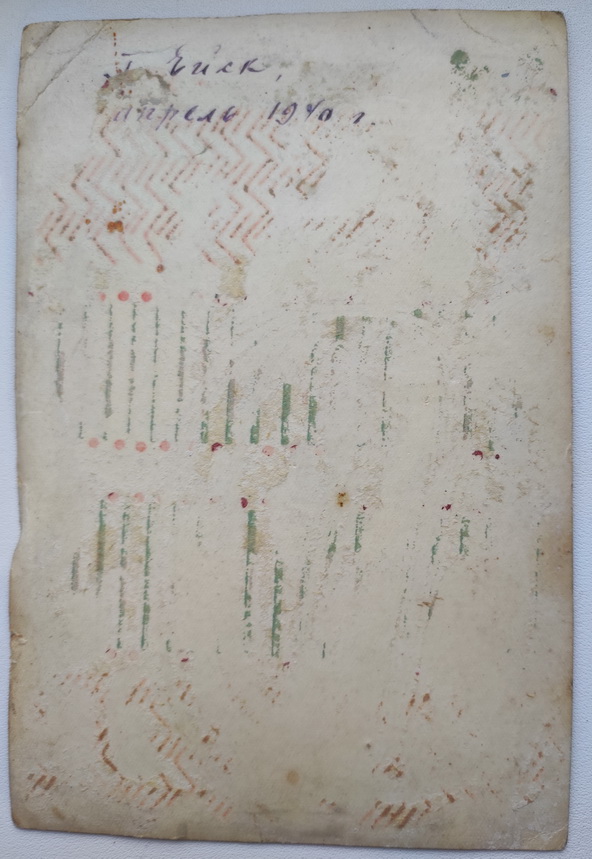 г. Ейск,
апрель 1940 г.